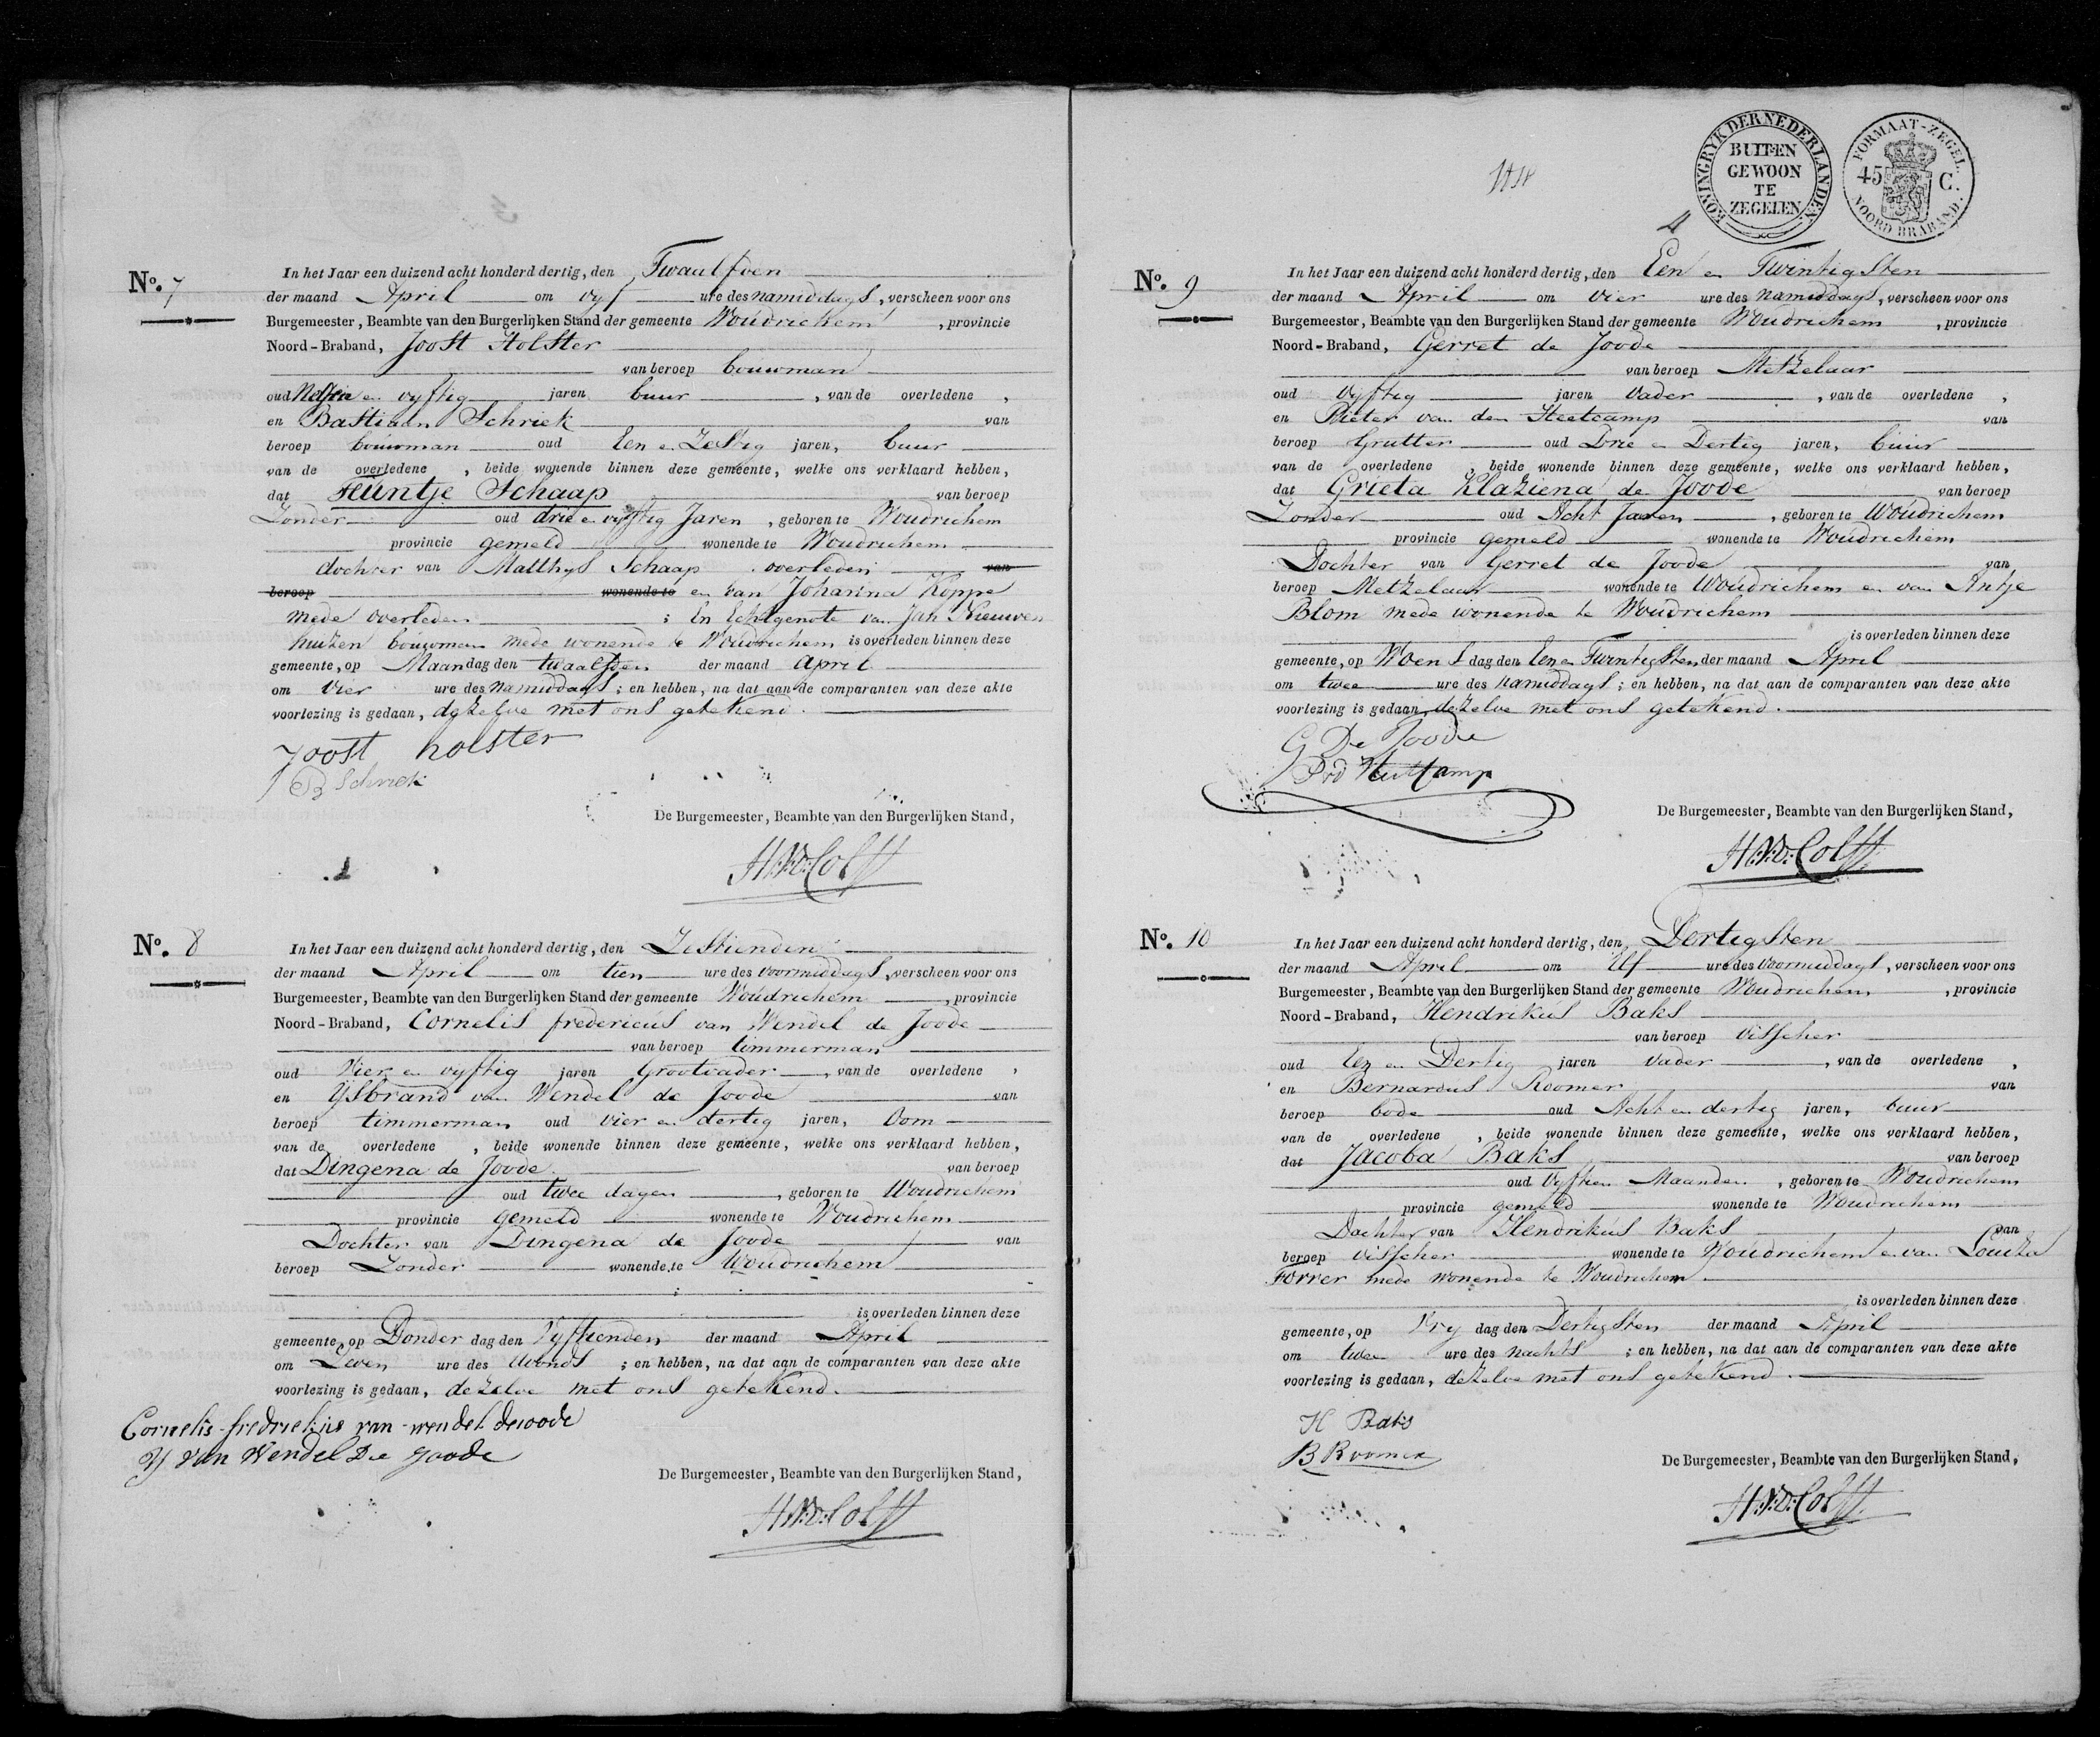 No. 7
In het Jaar een duizend acht honderd dertig, den Twaalfden
der maand April om vyf ure des namiddags, verscheen voor ons
Burgemeester, Beambte van den Burgerlijken Stand der gemeente Woudrichem, provincie
Noord-Braband, Joost Holster
van beroep bouwman
oud en vyftig jaren buur, van de overledene,
en Bastiaan Schriek van
beroep bouwman oud Een en Zestig jaren, buur
van de overledene, beide wonende binnen deze gemeente, welke ons verklaard hebben,
dat Teuntje Schaap van beroep
Zonder oud drie en vyftig Jaren, geboren te Woudrichem
provincie gemeld wonende te Woudrichem
dochter van Matthys Schaap overleden van
beroep wonende te en van Johanna Koppe
mede overleden ; En Echtgenote van Jan Nieuwen
huizen bouwman mede wonende te Woudrichem is overleden binnen deze
gemeente, op Maandag den twaalfden der maand April
om vier ure des namiddags; en hebben, na dat aan de comparanten van deze akte
voorlezing is gedaan, dezelve met ons getekend.
Joost holster
B Schriek
De Burgemeester, Beambte van den Burgerlijken Stand,
H.V.D. Colff
No. 8
In het Jaar een duizend acht honderd dertig, den Zestienden
der maand April om tien ure des voormiddags, verscheen voor ons
Burgemeester, Beambte van den Burgerlijken Stand der gemeente Woudrichem, provincie
Noord-Braband, Cornelis fredericus van Wendel de Joode
van beroep timmerman
oud Vier en vyftig jaren Grootvader, van de overledene,
en Ysbrand van Wendel de Joode van
beroep timmerman oud vier en dertig jaren, Oom
van de overledene, beide wonende binnen deze gemeente, welke ons verklaard hebben,
dat Dingena de Joode van beroep
oud twee dagen, geboren te Woudrichem
provincie gemeld wonende te Woudrichem
Dochter van Dingena de Joode van
beroep Zonder wonende te Woudrichem
;
is overleden binnen deze
gemeente, op Donderdag den Vyftienden der maand April
om Zeven ure des Avonds; en hebben, na dat aan de comparanten van deze akte
voorlezing is gedaan, dezelve met ons getekend.
Cornelis fredriekus van wendel dejoode
Y van Wendel De Joode
De Burgemeester, Beambte van den Burgerlijken Stand,
H.V.D. Colff
KONINGRYK DER NEDERLANDEN.
BUITEN
GEWOON
TE
ZEGELEN
FORMAAT-ZEGEL.
45 C.
NOORD BRABAND.
4
No. 9
In het Jaar een duizend acht honderd dertig, den Een en Twintigsten
der maand April om vier ure des namiddags, verscheen voor ons
Burgemeester, Beambte van den Burgerlijken Stand der gemeente Woudrichem, provincie
Noord-Braband, Gerret de Joode
van beroep Metzelaar
oud vyftig jaren vader, van de overledene,
en Pieter van den Steetcamp van
beroep Grutter oud Drie en Dertig jaren, buur
van de overledene, beide wonende binnen deze gemeente, welke ons verklaard hebben,
dat Grieta Klaziena de Joode van beroep
Zonder oud Acht Jaren, geboren te Woudrichem
provincie gemeld wonende te Woudrichem
Dochter van Gerret de Joode van
beroep Metzelaar wonende te Woudrichem en van Antje
Blom mede wonende te Woudrichem
is overleden binnen deze
gemeente, op Woensdag den Een en Twintigsten der maand April
om twee ure des namiddags; en hebben, na dat aan de comparanten van deze akte
voorlezing is gedaan, dezelve met ons getekend.
G De Joode
De Burgemeester, Beambte van den Burgerlijken Stand,
H.V.D. Colff
No. 10
In het Jaar een duizend acht honderd dertig, den Dertigsten
der maand April om Elf ure des voormiddags, verscheen voor ons
Burgemeester, Beambte van den Burgerlijken Stand der gemeente Woudrichem, provincie
Noord-Braband, Hendrikus Baks
van beroep visscher
oud Een en Dertig jaren vader, van de overledene,
en Bernardus Roomer van
beroep bode oud Acht en dertig jaren, buur
van de overledene, beide wonende binnen deze gemeente, welke ons verklaard hebben,
dat Jacoba Baks van beroep
oud vyftien Maanden, geboren te Woudrichem
provincie gemeld wonende te Woudrichem
Dochter van Hendrikus Baks van
beroep visscher wonende te Woudrichem en van Louiza
Forrer mede wonende te Woudrichem
is overleden binnen deze
gemeente, op Vrydag den Dertigsten der maand April
om twee ure des nachts; en hebben, na dat aan de comparanten van deze akte
voorlezing is gedaan, dezelve met ons getekend.
H Baks
B Roomer
De Burgemeester, Beambte van den Burgerlijken Stand,
H.V.D. Colff